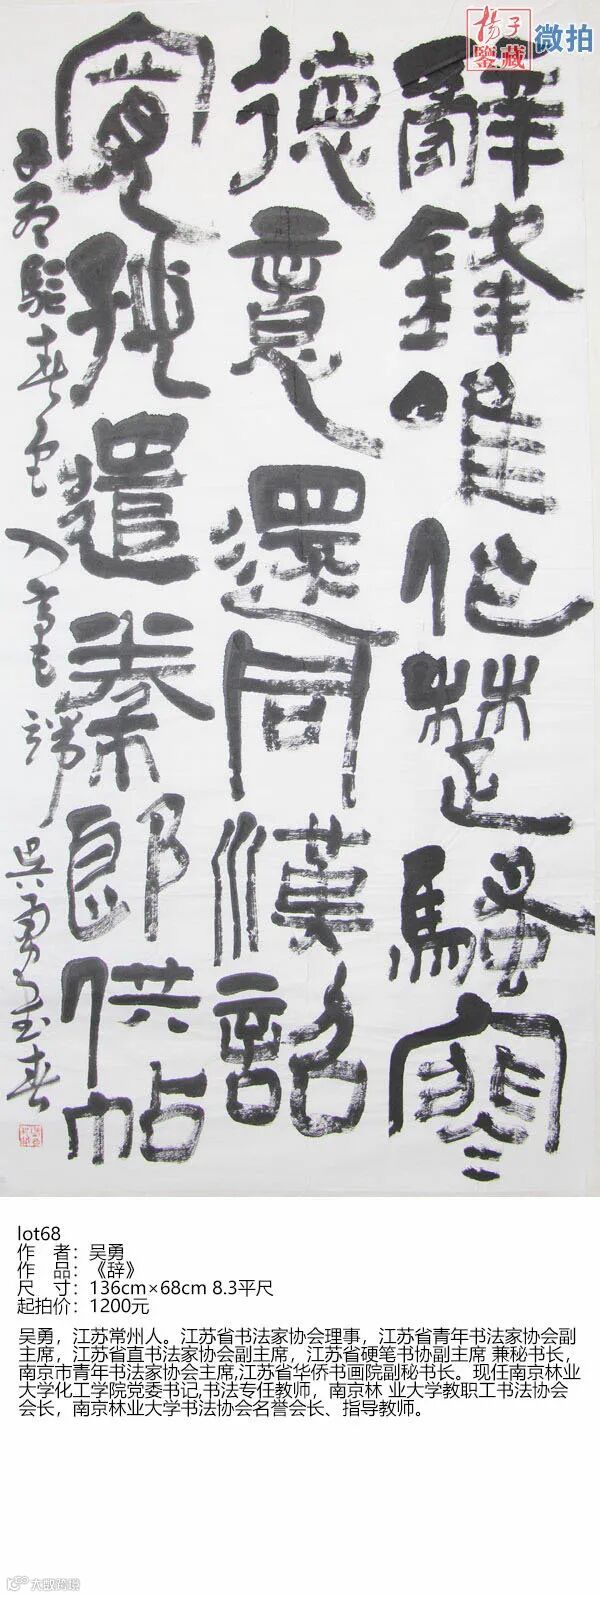 揚子
鑒藏
微拍
辭鋒唯作楚騷寒
德意還同漢詔寬
張遣蔡郎供帖
子
春
入
端
吴勇
春
lot68
作 者：吴勇
作 品：《辞》
尺 寸：136cm×68cm 8.3平尺
起拍价：1200元
吴勇，江苏常州人。江苏省书法家协会理事，江苏省青年书法家协会副
主席，江苏省直书法家协会副主席，江苏省硬笔书协副主席 兼秘书长，
南京市青年书法家协会主席,江苏省华侨书画院副秘书长。现任南京林业
大学化工学院党委书记,书法专任教师，南京林 业大学教职工书法协会
会长，南京林业大学书法协会名誉会长、指导教师。
大数跨境